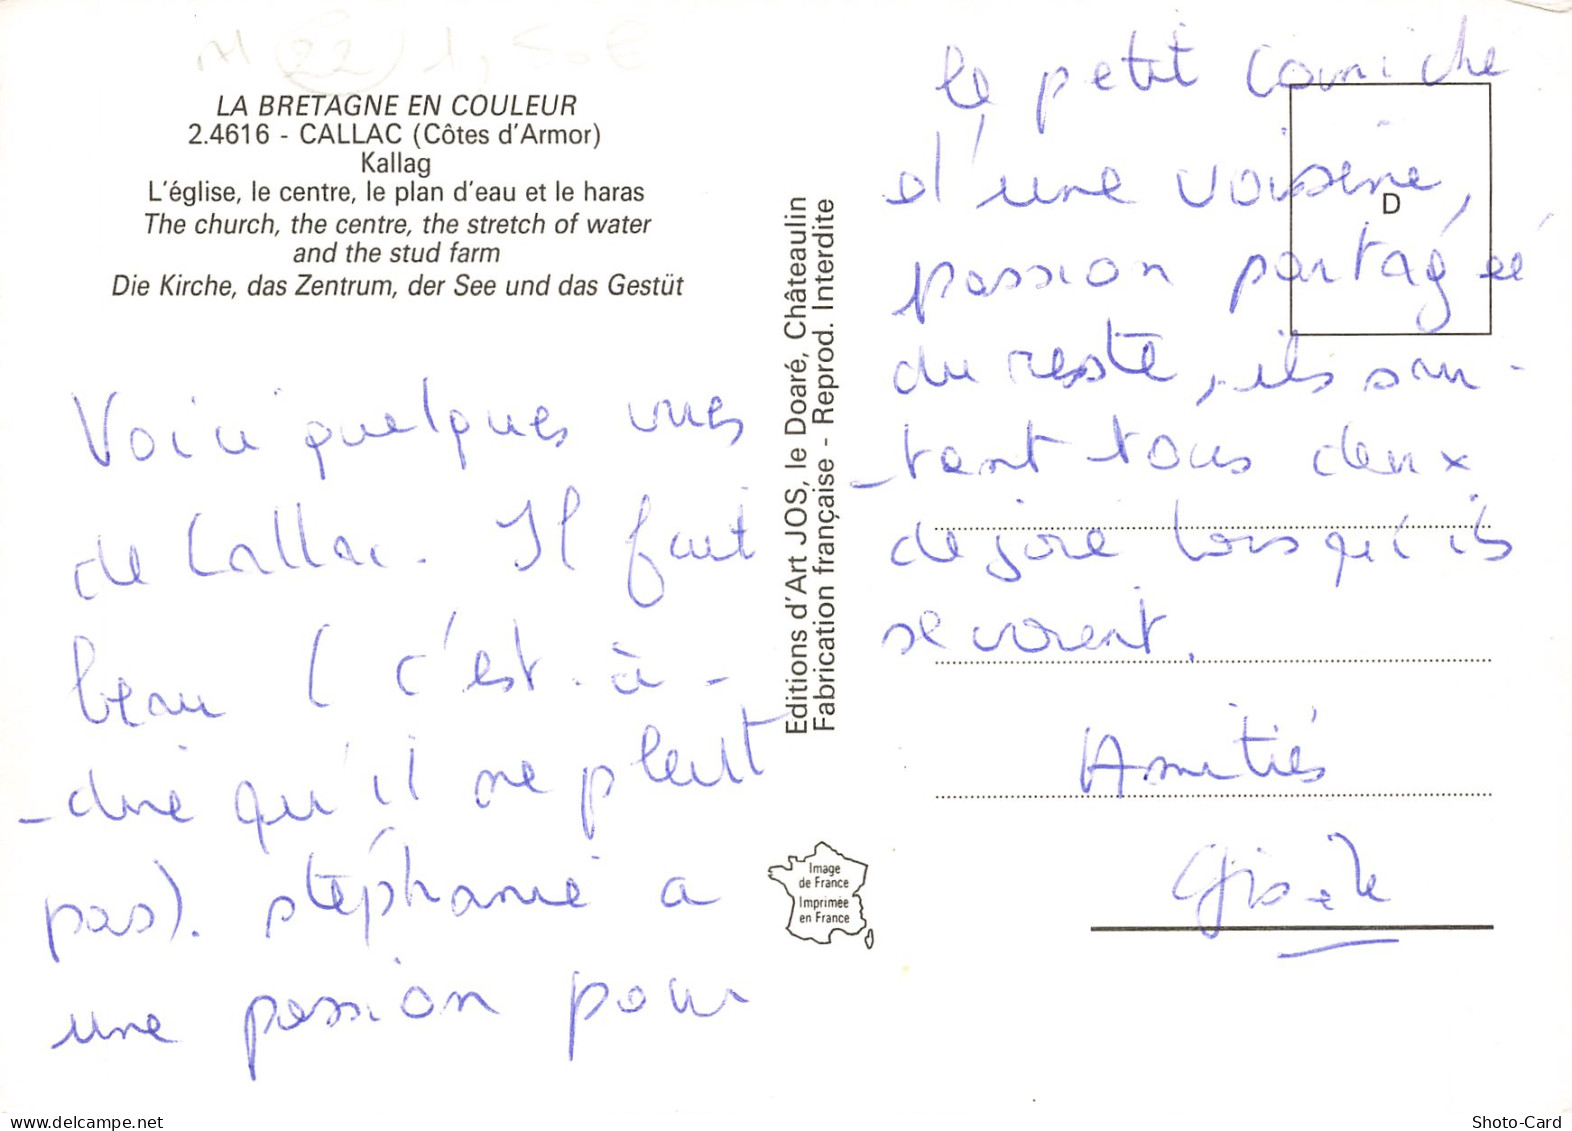 M (22) 1,50€
LA BRETAGNE EN COULEUR
2.4616 - CALLAC (Côtes d'Armor)
Kallag
L'église, le centre, le plan d'eau et le haras
The church, the centre, the stretch of water
and the stud farm
Die Kirche, das Zentrum, der See und das Gestüt
Voici quelques vues
de Callac. Il fait
beau (c'est-à-
-dire qu'il ne pleut
pas). Stéphanie a
une passion pour
Editions d'Art JOS, le Doaré, Châteaulin
Fabrication française - Reprod. Interdite
Image
de France
Imprimée
en France
le petit caniche
d'une voisine,
passion partagée
du reste, ils sau-
-tant tous deux
de joie lorsqu'ils
se voient.
D
Amitiés
Gisèle
Shoto-Card